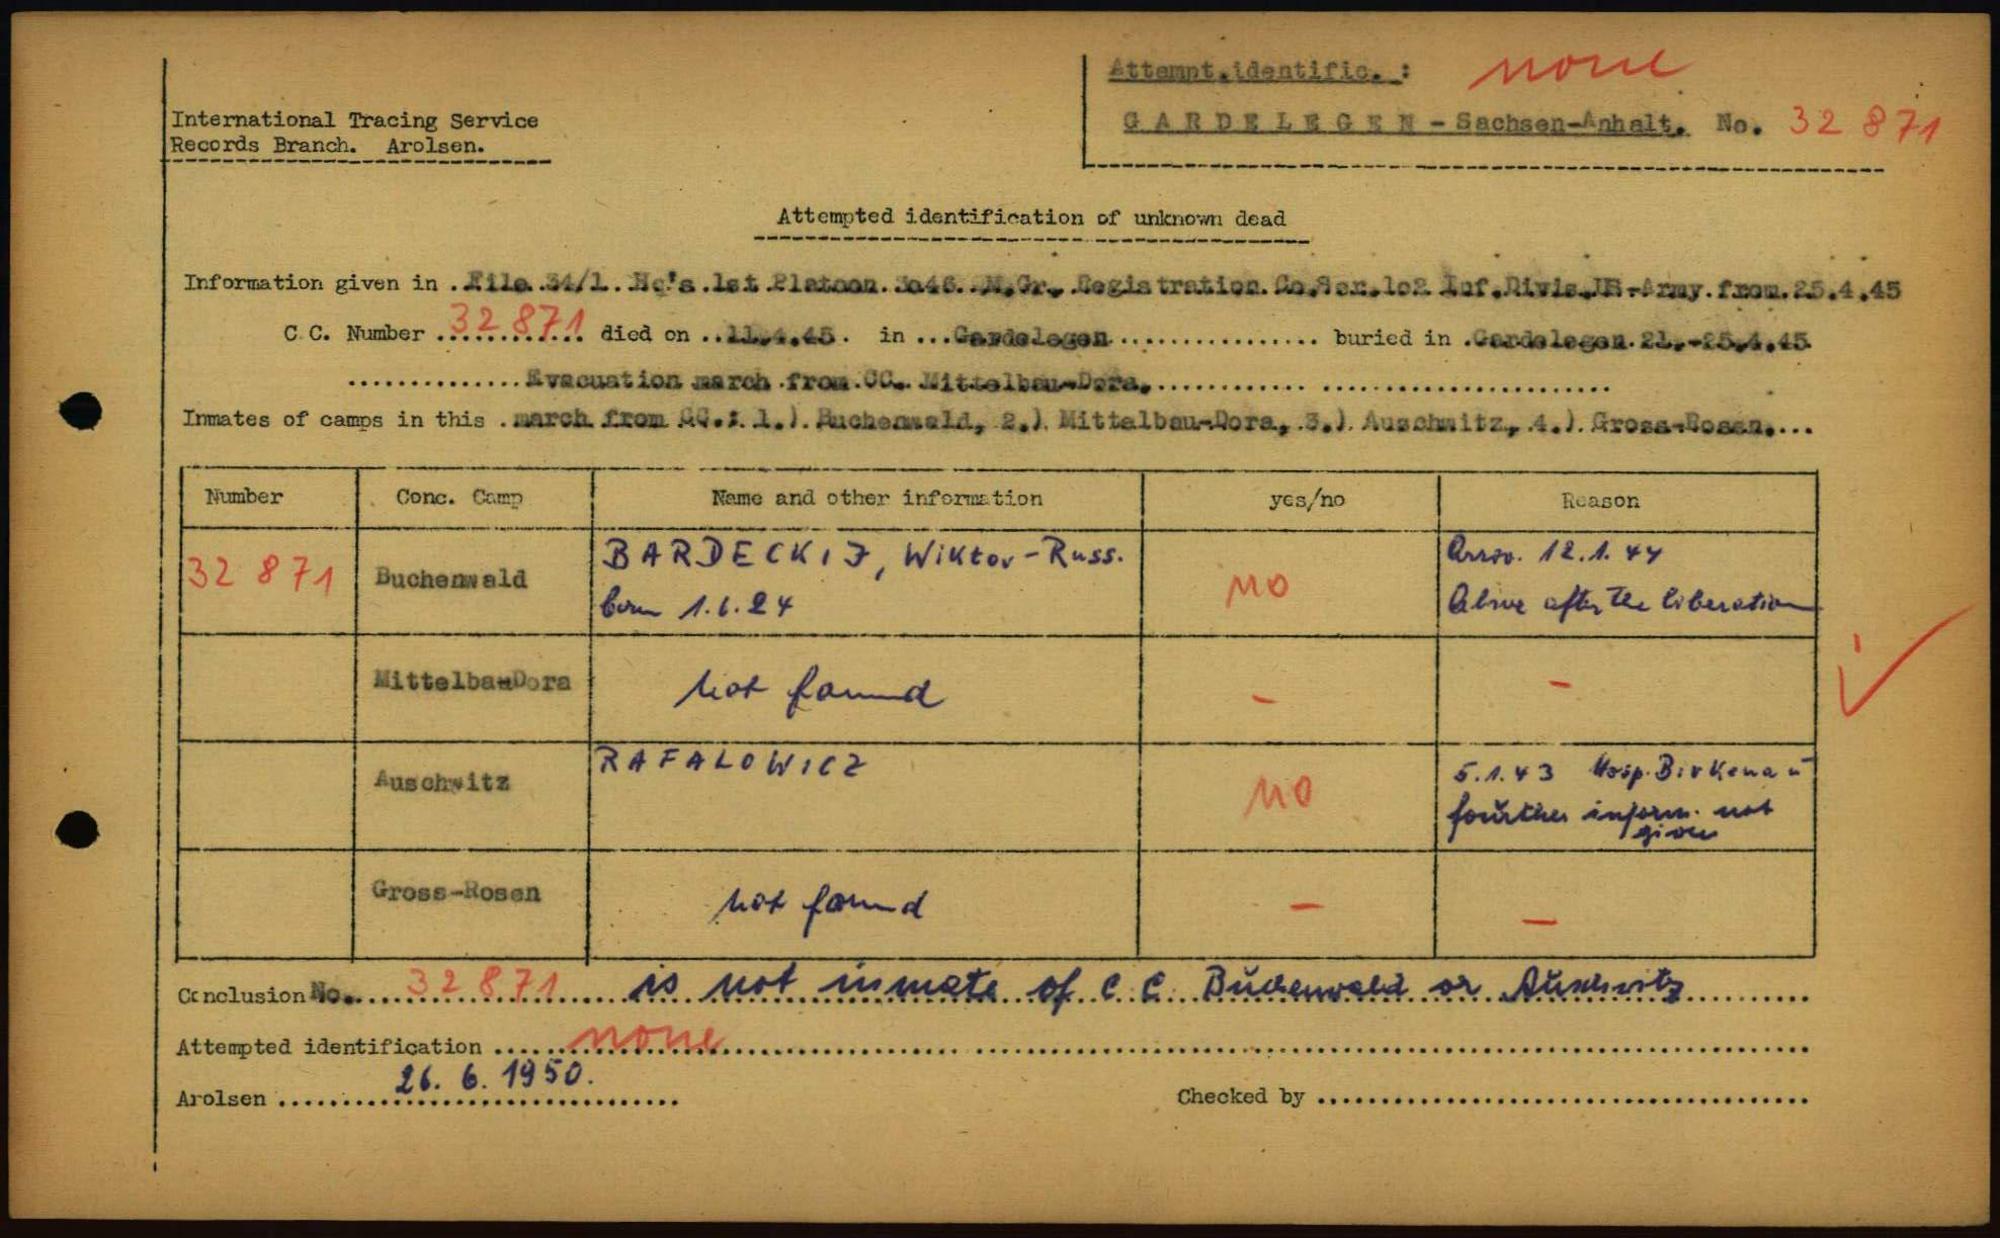 Attempt.identific. : none
GARDELEGEN - Sachsen-Anhalt. No. 32 871
International Tracing Service
Records Branch. Arolsen.
Attempted identification of unknown dead
Information given in File 34/1 Hq's 1st Platoon 3046 M.Gr. Registration Co.Ser.102 Inf.Divis.US-Army from 25.4.45
C.C. Number 32 871 died on 11.4.45. in Gardelegen buried in Gardelegen 21.-25.4.45
Evacuation march from CC. Mittelbau-Dora,
Inmates of camps in this march from CC.: 1.) Buchenwald, 2.) Mittelbau-Dora, 3.) Auschwitz, 4.) Gross-Rosen.
Number Conc. Camp Name and other information yes/no Reason
32 871 Buchenwald BARDECKIJ, Wiktor - Russ. no Arriv. 12.1.44
born 1.6.24 Alive after the liberation
Mittelbau-Dora not found - -
Auschwitz RAFALOWICZ no 5.1.43 Hosp. Birkenau
fourther inform. not
given
Gross-Rosen not found - -
Conclusion No. 32 871 is not inmate of C.C. Buchenwald or Auschwitz
Attempted identification none
Arolsen 26. 6. 1950. Checked by